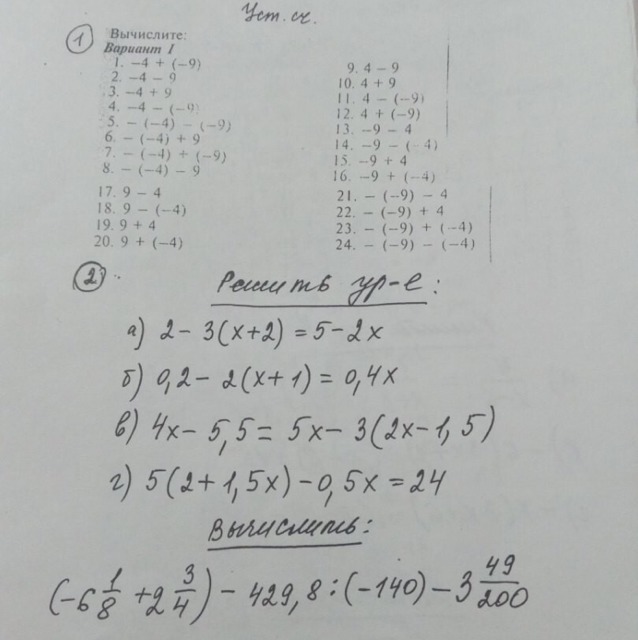 Уст. сч.
1 Вычислите:
Вариант 1
1. −4 + (−9)
2. −4 − 9
3. −4 + 9
4. −4 − (−9)
5. − (−4) − (−9)
6. − (−4) + 9
7. − (−4) + (−9)
8. − (−4) − 9
9. 4 − 9
10. 4 + 9
11. 4 − (−9)
12. 4 + (−9)
13. −9 − 4
14. −9 − (−4)
15. −9 + 4
16. −9 + (−4)
17. 9 − 4
18. 9 − (−4)
19. 9 + 4
20. 9 + (−4)
21. − (−9) − 4
22. − (−9) + 4
23. − (−9) + (−4)
24. − (−9) − (−4)
2 Решить ур-е:
а) 2 − 3(x+2) = 5 − 2x
б) 0,2 − 2(x+1) = 0,4x
в) 4x − 5,5 = 5x − 3(2x−1,5)
г) 5(2+1,5x) − 0,5x = 24
Вычислить:
(−6 1/8 + 2 3/4) − 429,8 : (−140) − 3 49/200